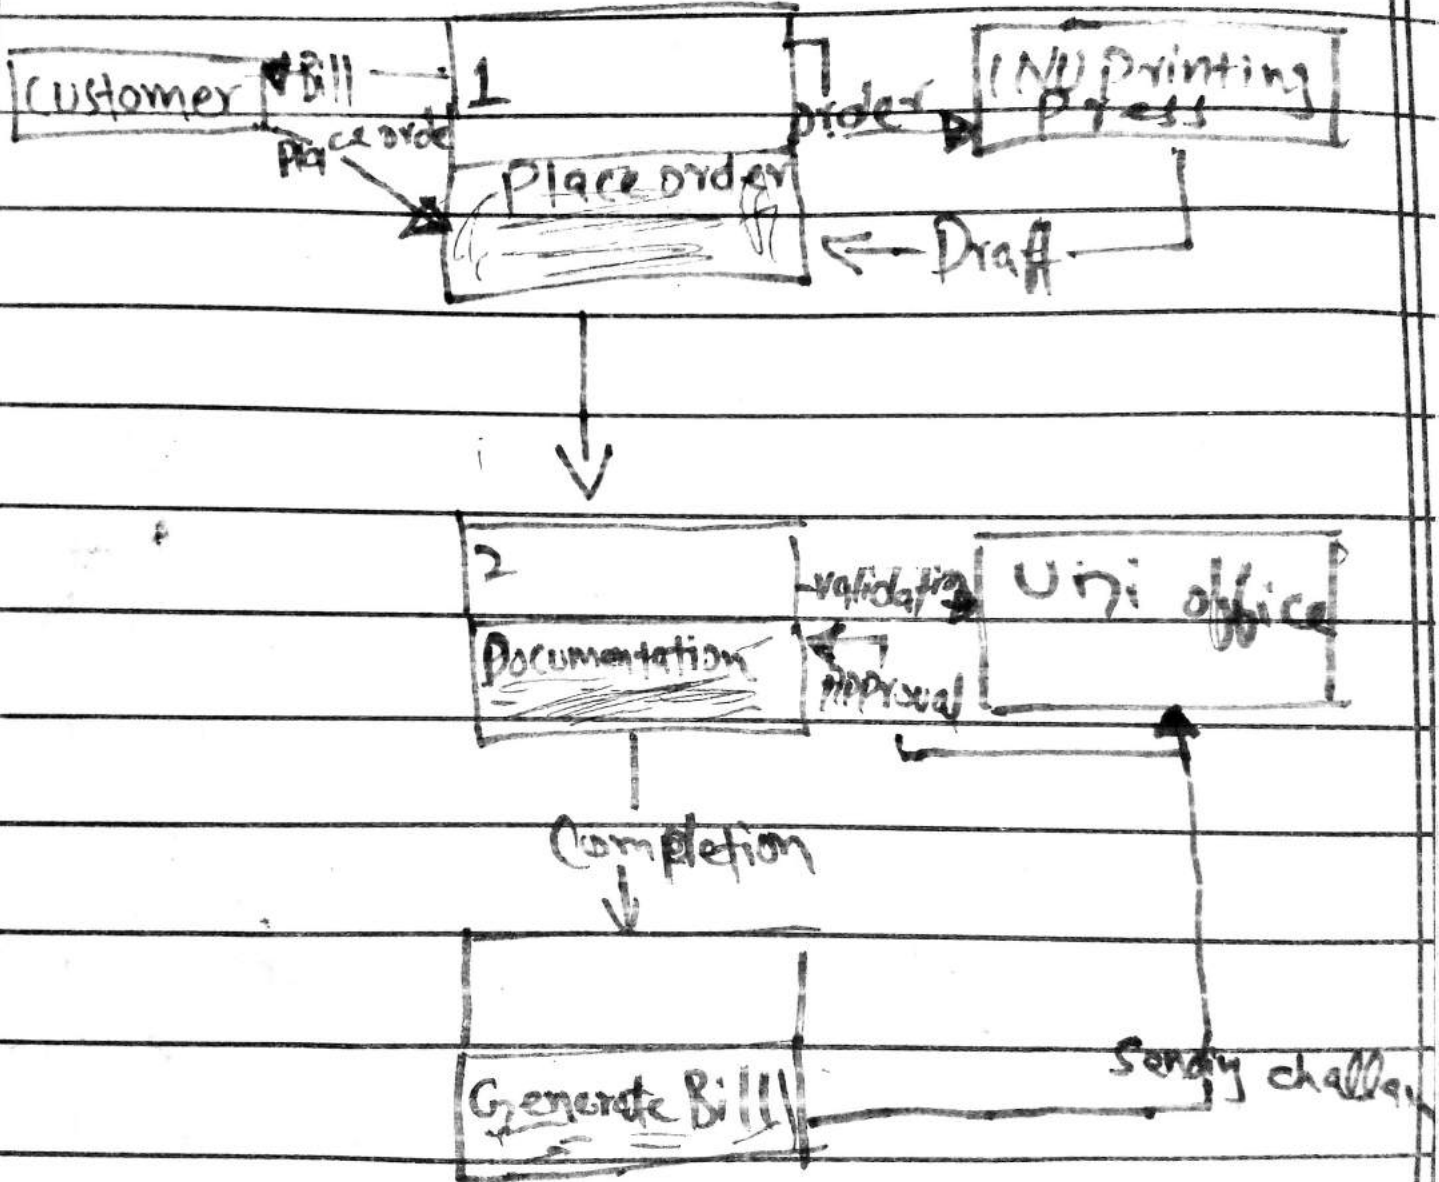 Customer
Bill
Place orde
1
Place order
order
(NU Printing
Press
Draft
2
Documentation
validation
Approval
Uni office
Completion
Generate Bill
Sending challan